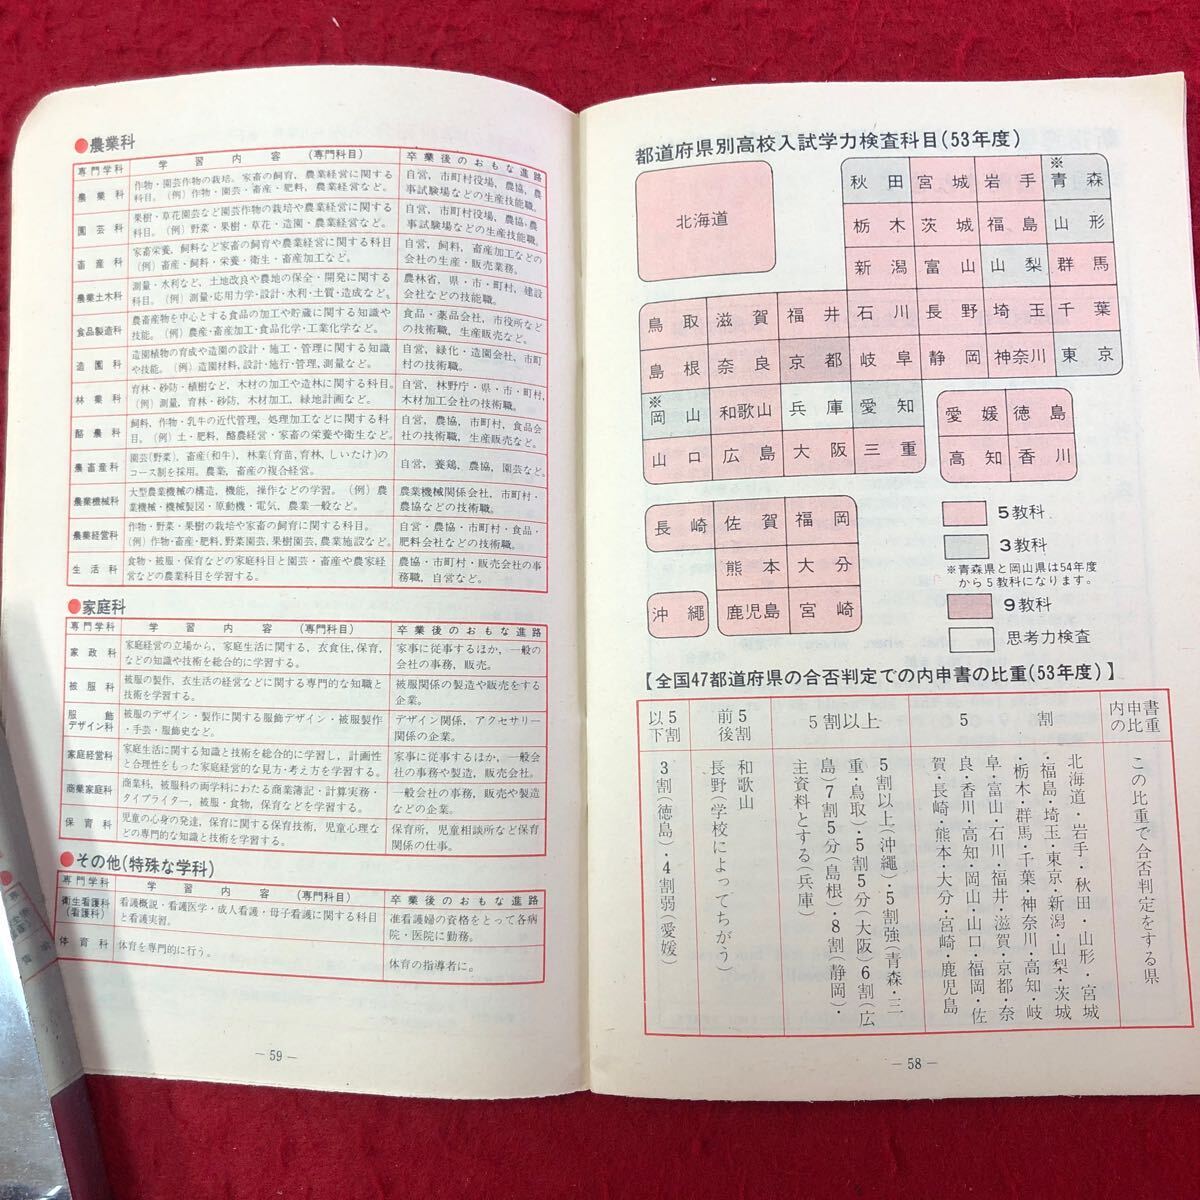 ●農業科
専門学科 学習内容(専門科目) 卒業後のおもな進路
農業科 作物・園芸作物の栽培。家畜の飼育,農業経営に関する
科目。(例)作物・園芸・畜産・肥料,農業経営など。
自営,市町村役場,農協,農
事試験場などの生産技能職。
園芸科 果樹・草花園芸など園芸作物の栽培や農業経営に関する
科目。(例)野菜・果樹・草花・造園・農業経営など。
自営,市町村役場,農協,農
事試験場などの生産技能職。
畜産科 家畜栄養,飼料など家畜の飼育や農業経営に関する科目
(例)畜産・飼料・栄養・衛生・畜産加工など。
自営,飼料,畜産加工などの
会社の生産・販売業務。
農業土木科 測量・水利など,土地改良や農地の保全・開発に関する
科目。(例)測量・応用力学・設計・水利・土質・造成など。
農林省,県・市・町村,建設
会社などの技能職。
食品製造科 農畜産物を中心とする食品の加工や貯蔵に関する知識や
技能。(例)農産・畜産加工・食品化学・工業化学など。
食品・薬品会社,市役所など
の技術職,生産販売など。
造園科 造園植物の育成や造園の設計・施工・管理に関する知識
や技能。(例)造園材料,設計・施行・管理,測量など。
自営,緑化・造園会社,市町
村の技術職。
林業科 育林・砂防・植樹など,木材の加工や造林に関する科目。
(例)測量,育林・砂防,木材加工,緑地計画など。
自営,林野庁・県・市・町村,
木材加工会社の技術職。
酪農科 飼料,作物・乳牛の近代管理,処理加工などに関する科
目。(例)土・肥料,酪農経営・家畜の栄養や衛生など。
自営,農協,市町村,食品会
社の技術職,生産販売など。
農畜産科 園芸(野菜),畜産(和牛),林業(育苗,育林,しいたけ)の
コース制を採用。農業,畜産の複合経営。
自営,養鶏,農協,園芸など。
農業機械科 大型農業機械の構造,機能,操作などの学習。(例)農
業機械・機械製図・原動機・電気,農業一般など。
農業機械関係会社,市町村・
農協などの技術職。
農業経営科 作物・野菜・果樹の栽培や家畜の飼育に関する科目。
(例)作物・畜産・肥料,野菜園芸,果樹園芸,農業施設など。
自営・農協・市町村・食品・
肥料会社などの技術職。
生活科 食物・被服・保育などの家庭科目と園芸・畜産や農家経
営などの農業科目を学習する。
農協・市町村・販売会社の事
務職,自営など。
●家庭科
専門学科 学習内容(専門科目) 卒業後のおもな進路
家政科 家庭経営の立場から,家庭生活に関する,衣食住,保育,
などの知識や技術を総合的に学習する。
家事に従事するほか,一般の
会社の事務,販売。
被服科 被服の製作,衣生活の経営などに関する専門的な知識と
技術を学習する。
被服関係の製造や販売をする
企業。
服飾
デザイン科 被服のデザイン・製作に関する服飾デザイン・被服製作
・手芸・服飾史など。
デザイン関係,アクセサリー
関係の企業。
家庭経営科 家庭生活に関する知識と技術を総合的に学習し,計画性
と合理性をもった家庭経営的な見方・考え方を学習する。
家事に従事するほか,一般会
社の事務や製造,販売会社。
商業家庭科 商業科,被服科の両学科にわたる商業簿記・計算実務・
タイプライター,被服・食物,保育などを学習する。
一般会社の事務,販売や製造
などの企業。
保育科 児童の心身の発達,保育に関する保育技術,児童心理な
どの専門的な知識と技術を学習する。
保育所,児童相談所など保育
関係の仕事。
●その他(特殊な学科)
専門学科 学習内容(専門科目) 卒業後のおもな進路
衛生看護科
(看護科) 看護概説・看護医学・成人看護・母子看護に関する科目
と看護実習。
准看護婦の資格をとって各病
院・医院に勤務。
体育科 体育を専門的に行う。
体育の指導者に。
— 59 —
都道府県別高校入試学力検査科目(53年度)
北海道
秋田 宮城 岩手 ※青森
栃木 茨城 福島 山形
新潟 富山 山梨 群馬
鳥取 滋賀 福井 石川 長野 埼玉 千葉
島根 奈良 京都 岐阜 静岡 神奈川 東京
※岡山 和歌山 兵庫 愛知
山口 広島 大阪 三重
愛媛 徳島
高知 香川
長崎 佐賀 福岡
熊本 大分
沖縄 鹿児島 宮崎
5教科
3教科
※青森県と岡山県は54年度
から5教科になります。
9教科
思考力検査
【全国47都道府県の合否判定での内申書の比重(53年度)】
内申書の比重
この比重で合否判定をする県
5割
北海道・岩手・秋田・山形・宮城
・福島・埼玉・東京・新潟・山梨・茨城
・栃木・群馬・千葉・神奈川・高知・岐
阜・富山・石川・福井・滋賀・京都・奈
良・香川・高知・岡山・山口・福岡・佐
賀・長崎・熊本・大分・宮崎・鹿児島
5割以上
5割以上(沖縄)・5割強(青森・三
重・鳥取)・5割5分(大阪)6割(広
島)7割5分(島根)・8割(静岡)・
主資料とする(兵庫)
5割前後
和歌山
長野(学校によってちがう)
5割以下
3割(徳島)・4割弱(愛媛)
— 58 —